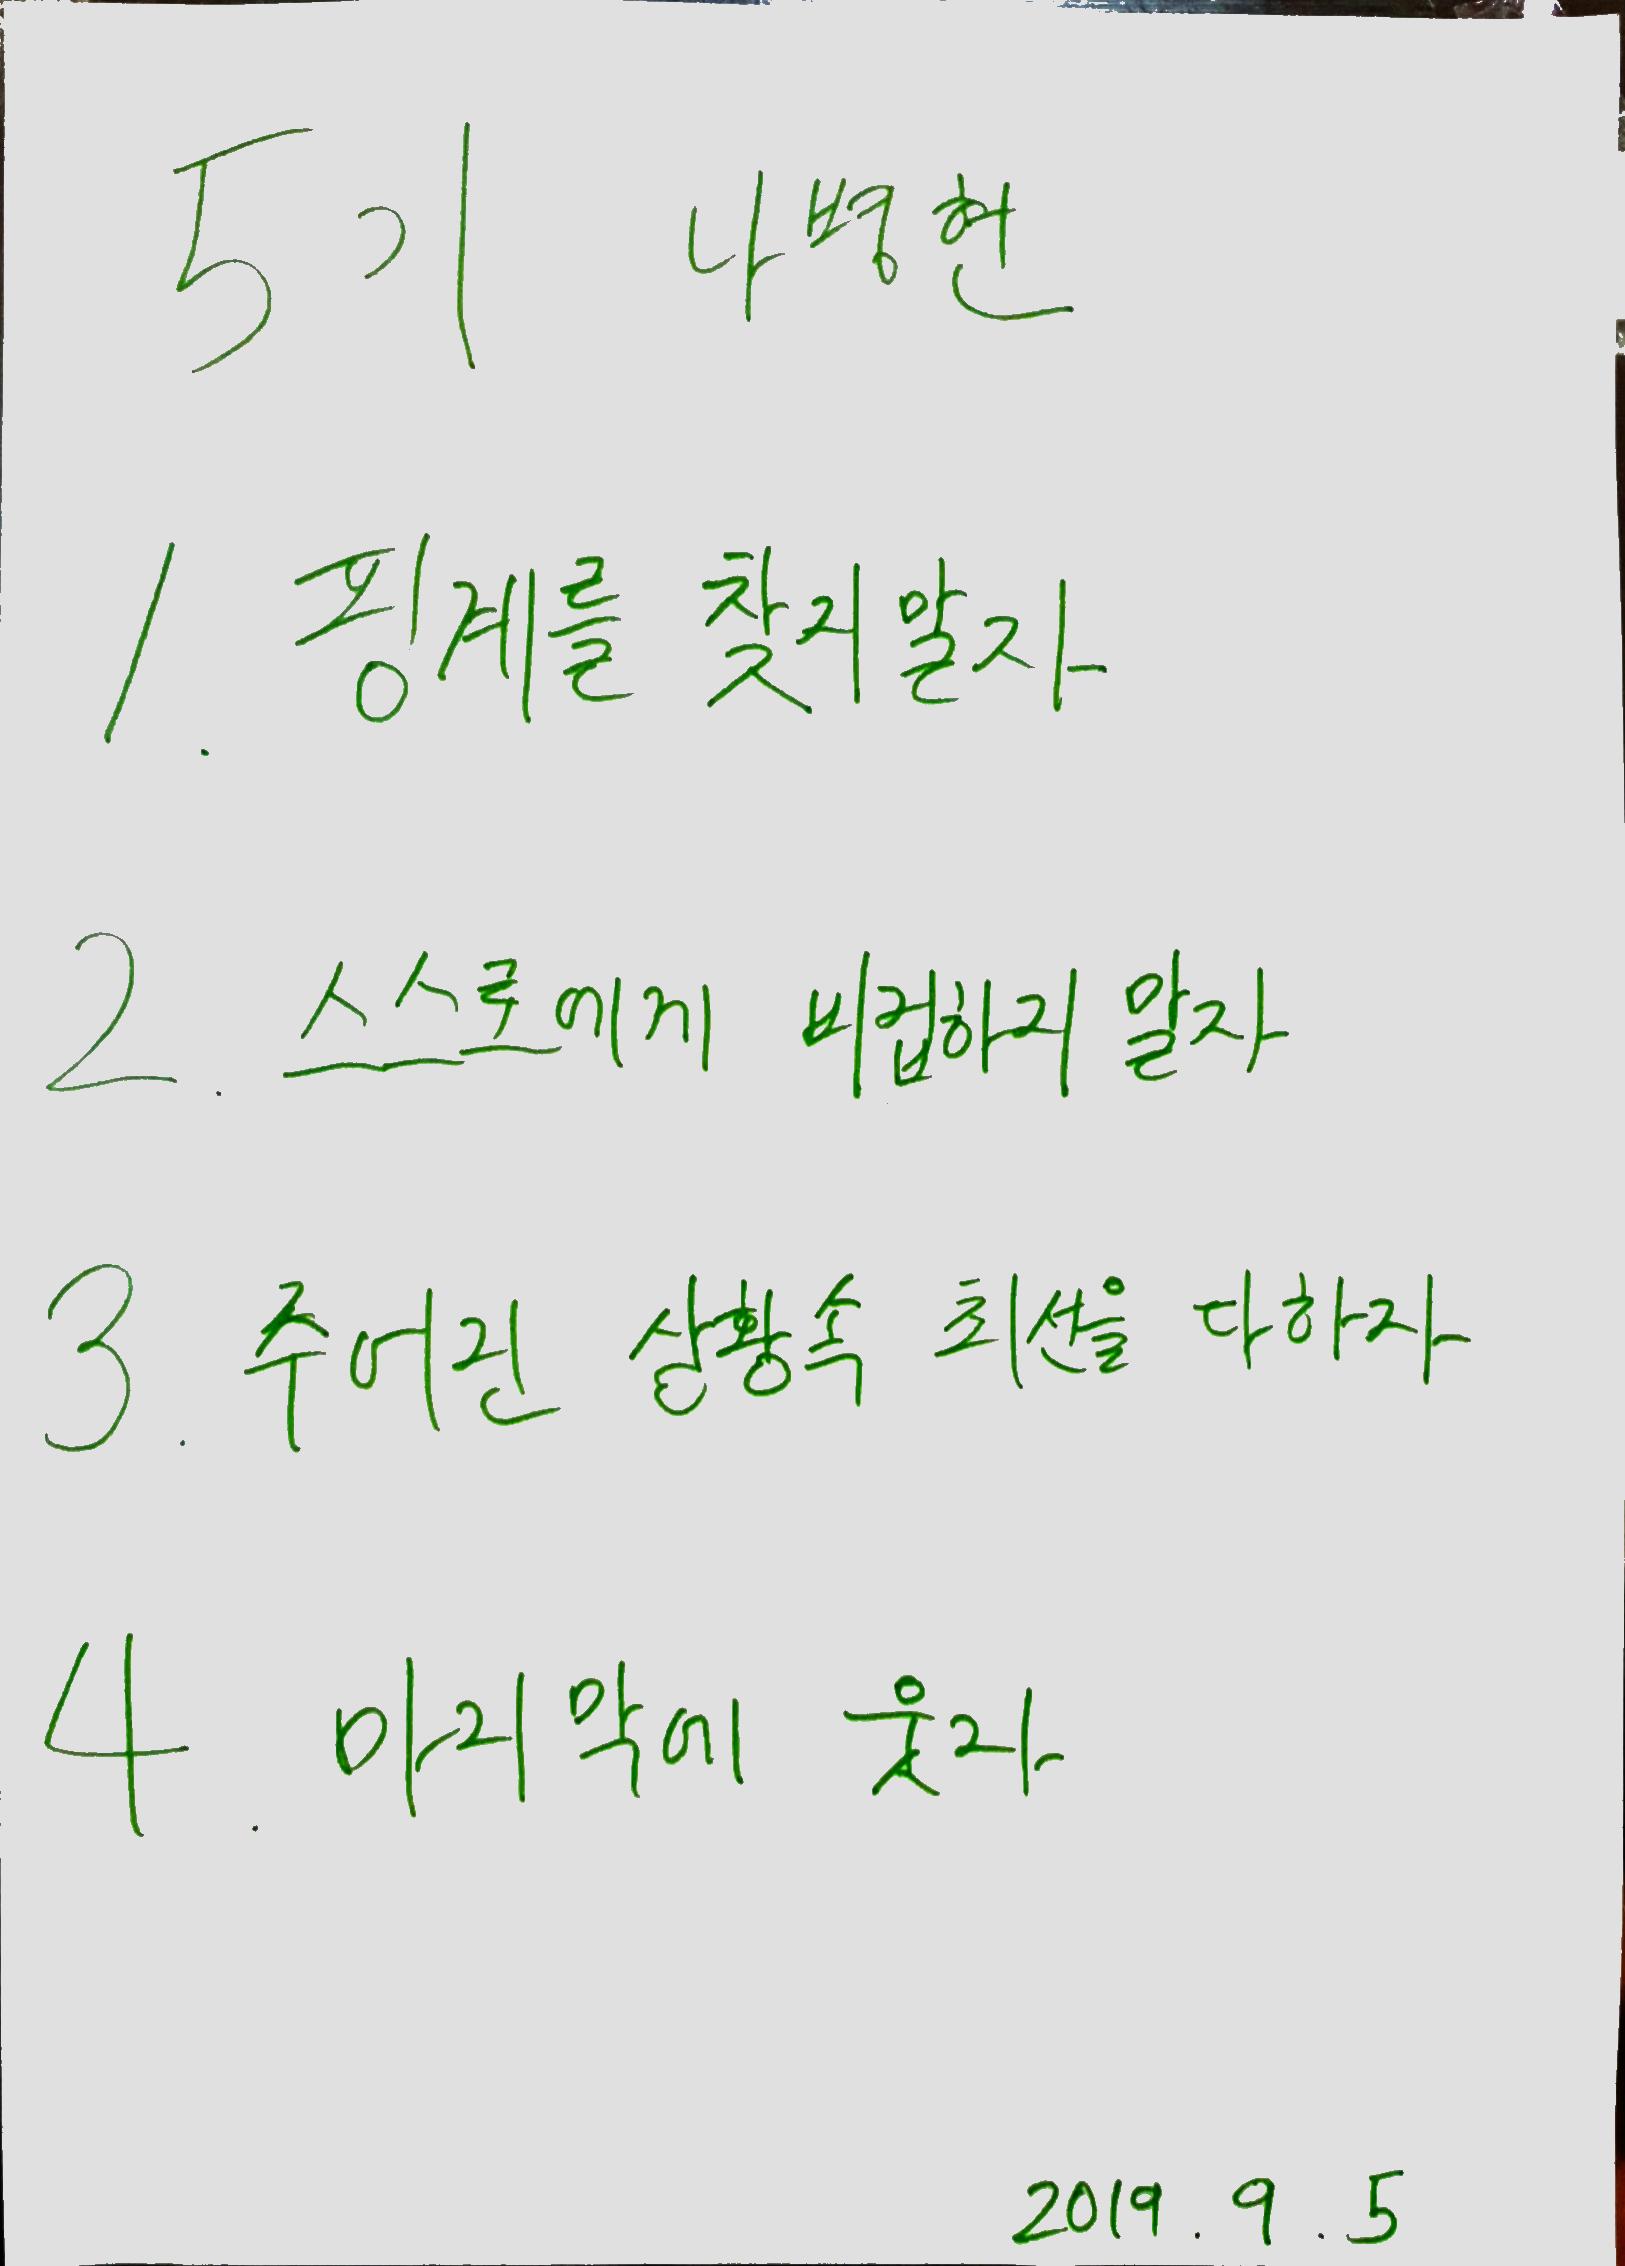 5기 나병현
1. 핑계를 찾지말자
2. 스스로에게 비겁하지 말자
3. 주어진 상황속 최선을 다하자
4. 마지막에 웃자
2019. 9. 5